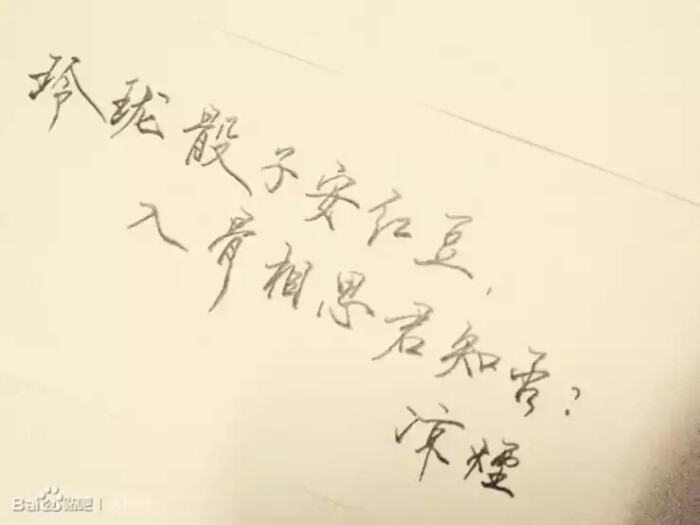 玲珑骰子安红豆,
入骨相思君知否?
凉烟
Bai贴吧